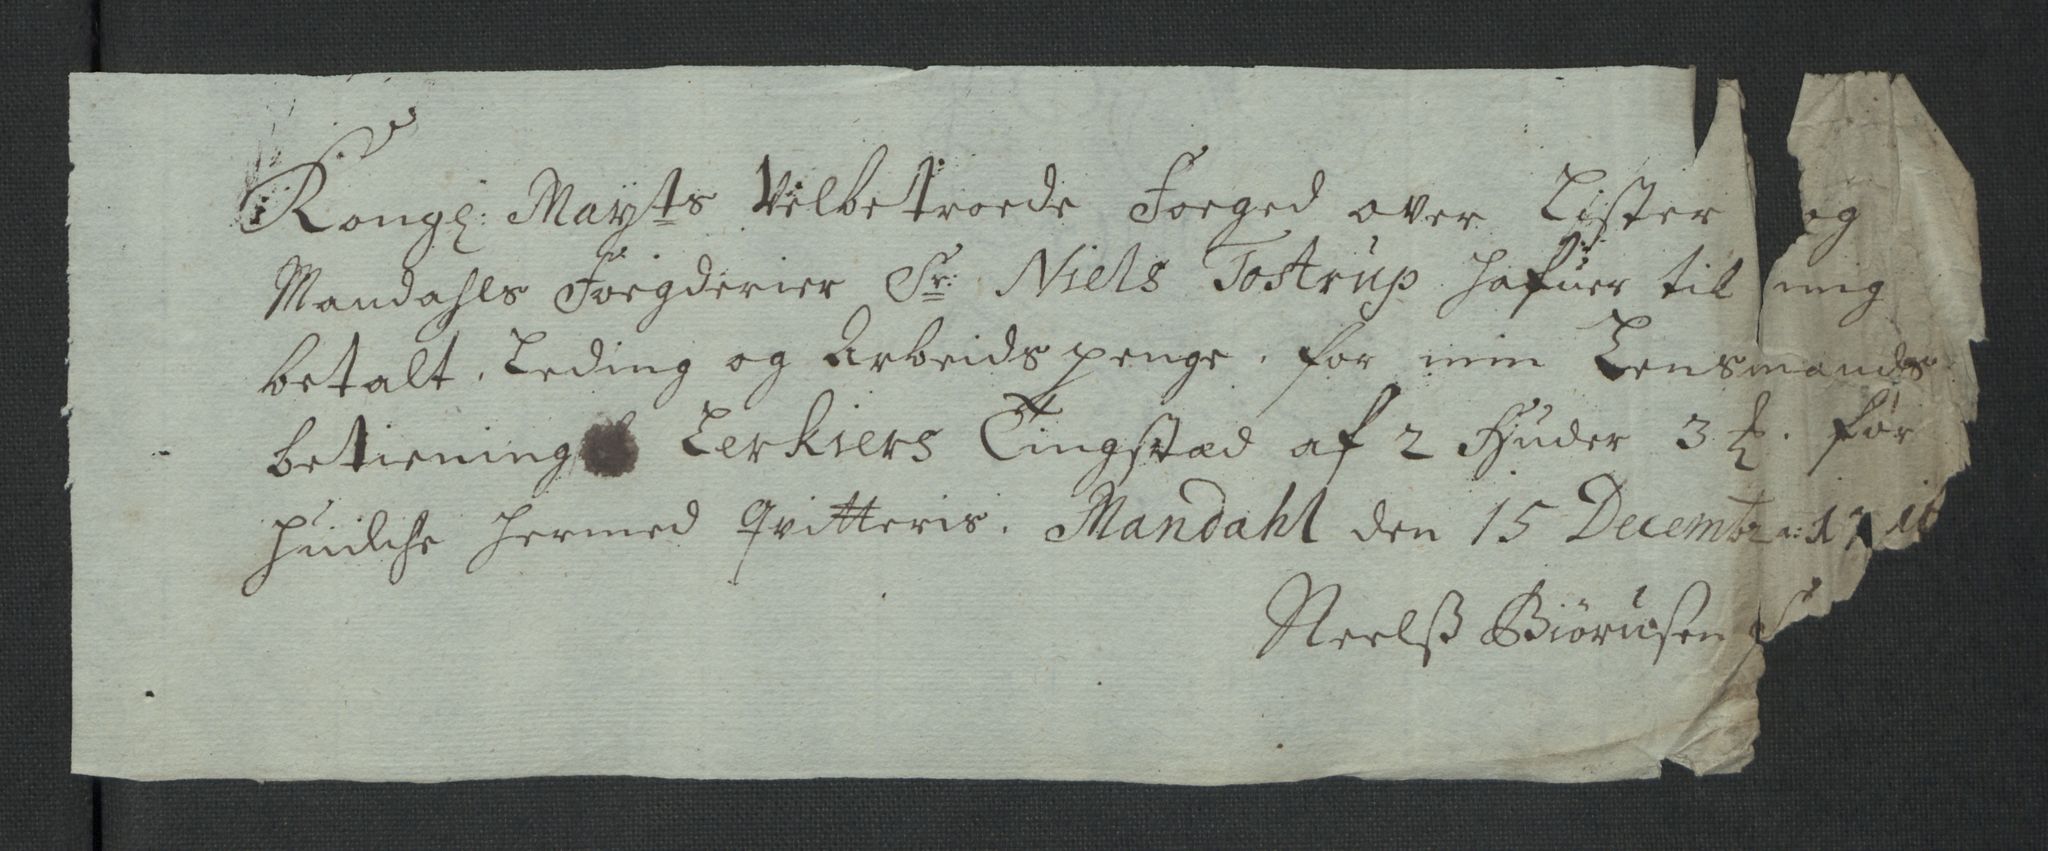 Kongl: Mayts Velbetroede Foeged over Lister og
Mandahls Foegderier Sr: Niels Tostrup hafuer til mig
betalt, Leding og Arbeids penge, for min Lensmands
betiening Lerkiers Tingsted af 2 Hjuder 3 for
huilche hermed Qvitteris. Mandahl den 15 Decembr a: 17
Neelß Biörnsen